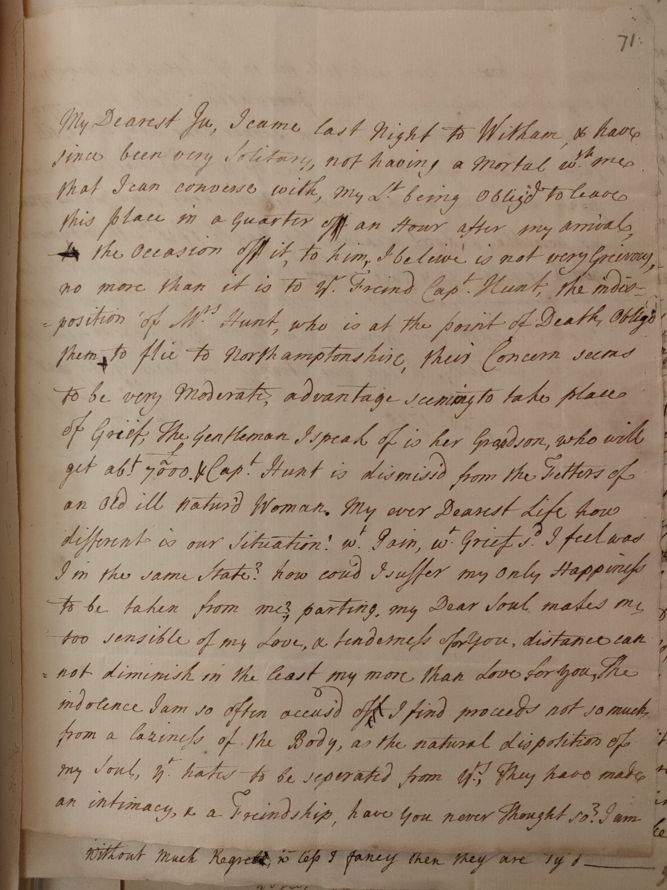 71
My Dearest Ju, I came last Night to Witham, & have
since been very Solitary, not having a Mortal wth. me
that I can converse with, My Lt. being Oblig'd to leave
this place in a Quarter off an Hour after my arrival,
the Occasion off it, to him, I beleive is not very Greivous,
no more than it is to Yr. Freind Capt. Hunt, the indis=
=position of Mrs Hunt, who is at the point of Death, Oblig'd
them to flie to Northamptonshire, their Concern seems
to be very Moderate, advantage seeming to take place
of Greif, The Gentleman I speak of is her Grandson, who will
get abt. 7000. & Capt. Hunt is dismiss'd from the Fetters of
an Old ill Natur'd Woman. My ever Dearest Life how
different is our Situation! wt. Pain, wt. Greif sd. I feel was
I in the same State? how cou'd I suffer my Only Happiness
to be taken from me?, parting, my Dear Soul makes me
too sensible of my Love, & tenderness for You, distance can
=not diminish in the least my more than Love for You, The
indolence I am so often accus'd off I find proceeds not so much
from a laziness of the Body, as the natural disposition of
my Soul, yt. hates to be seperated from Yrs, they have made
an intimacy, & a Freindship, have You never thought so? I am
without Much Regret, unless I fancy then they are